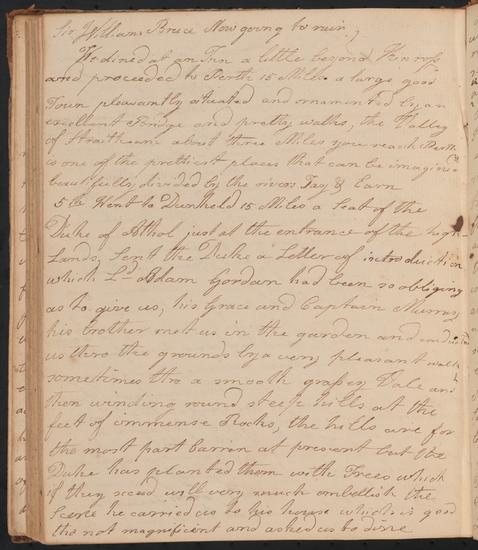 Sir William Bruce Now going to ruin,
We dined at an Inn a little beyond Kinross
and proceeded to Perth 15 Miles a large good
Town pleasantly situated and ornamented by an
excellent Bridge and pretty walks, the Valley
of Strathearn about three Miles you reach Perth
is one of the prettiest places that can be imagin'd
beautifully divided by the rivers Tay & Earn
5th Went to Dunkeld 15 Miles a Seat of the
Duke of Athol just at the entrance of the high
Lands, Sent the Duke a Letter of introduction
which Ld Adam Gordon had been so obliging
as to give us, his Grace and Captain Murray
his brother met us in the garden and conducted
us thro the grounds by a very pleasant walk
sometimes thro a smooth grassy Vale and
then winding round steep hills at the
feet of immense Rocks, the hills are for
the most part Barrin at present but the
Duke has planted them with Trees which
if they scced will very much embellish the
Scene he carried us to his house which is good
tho not magnificent and asked us to dine